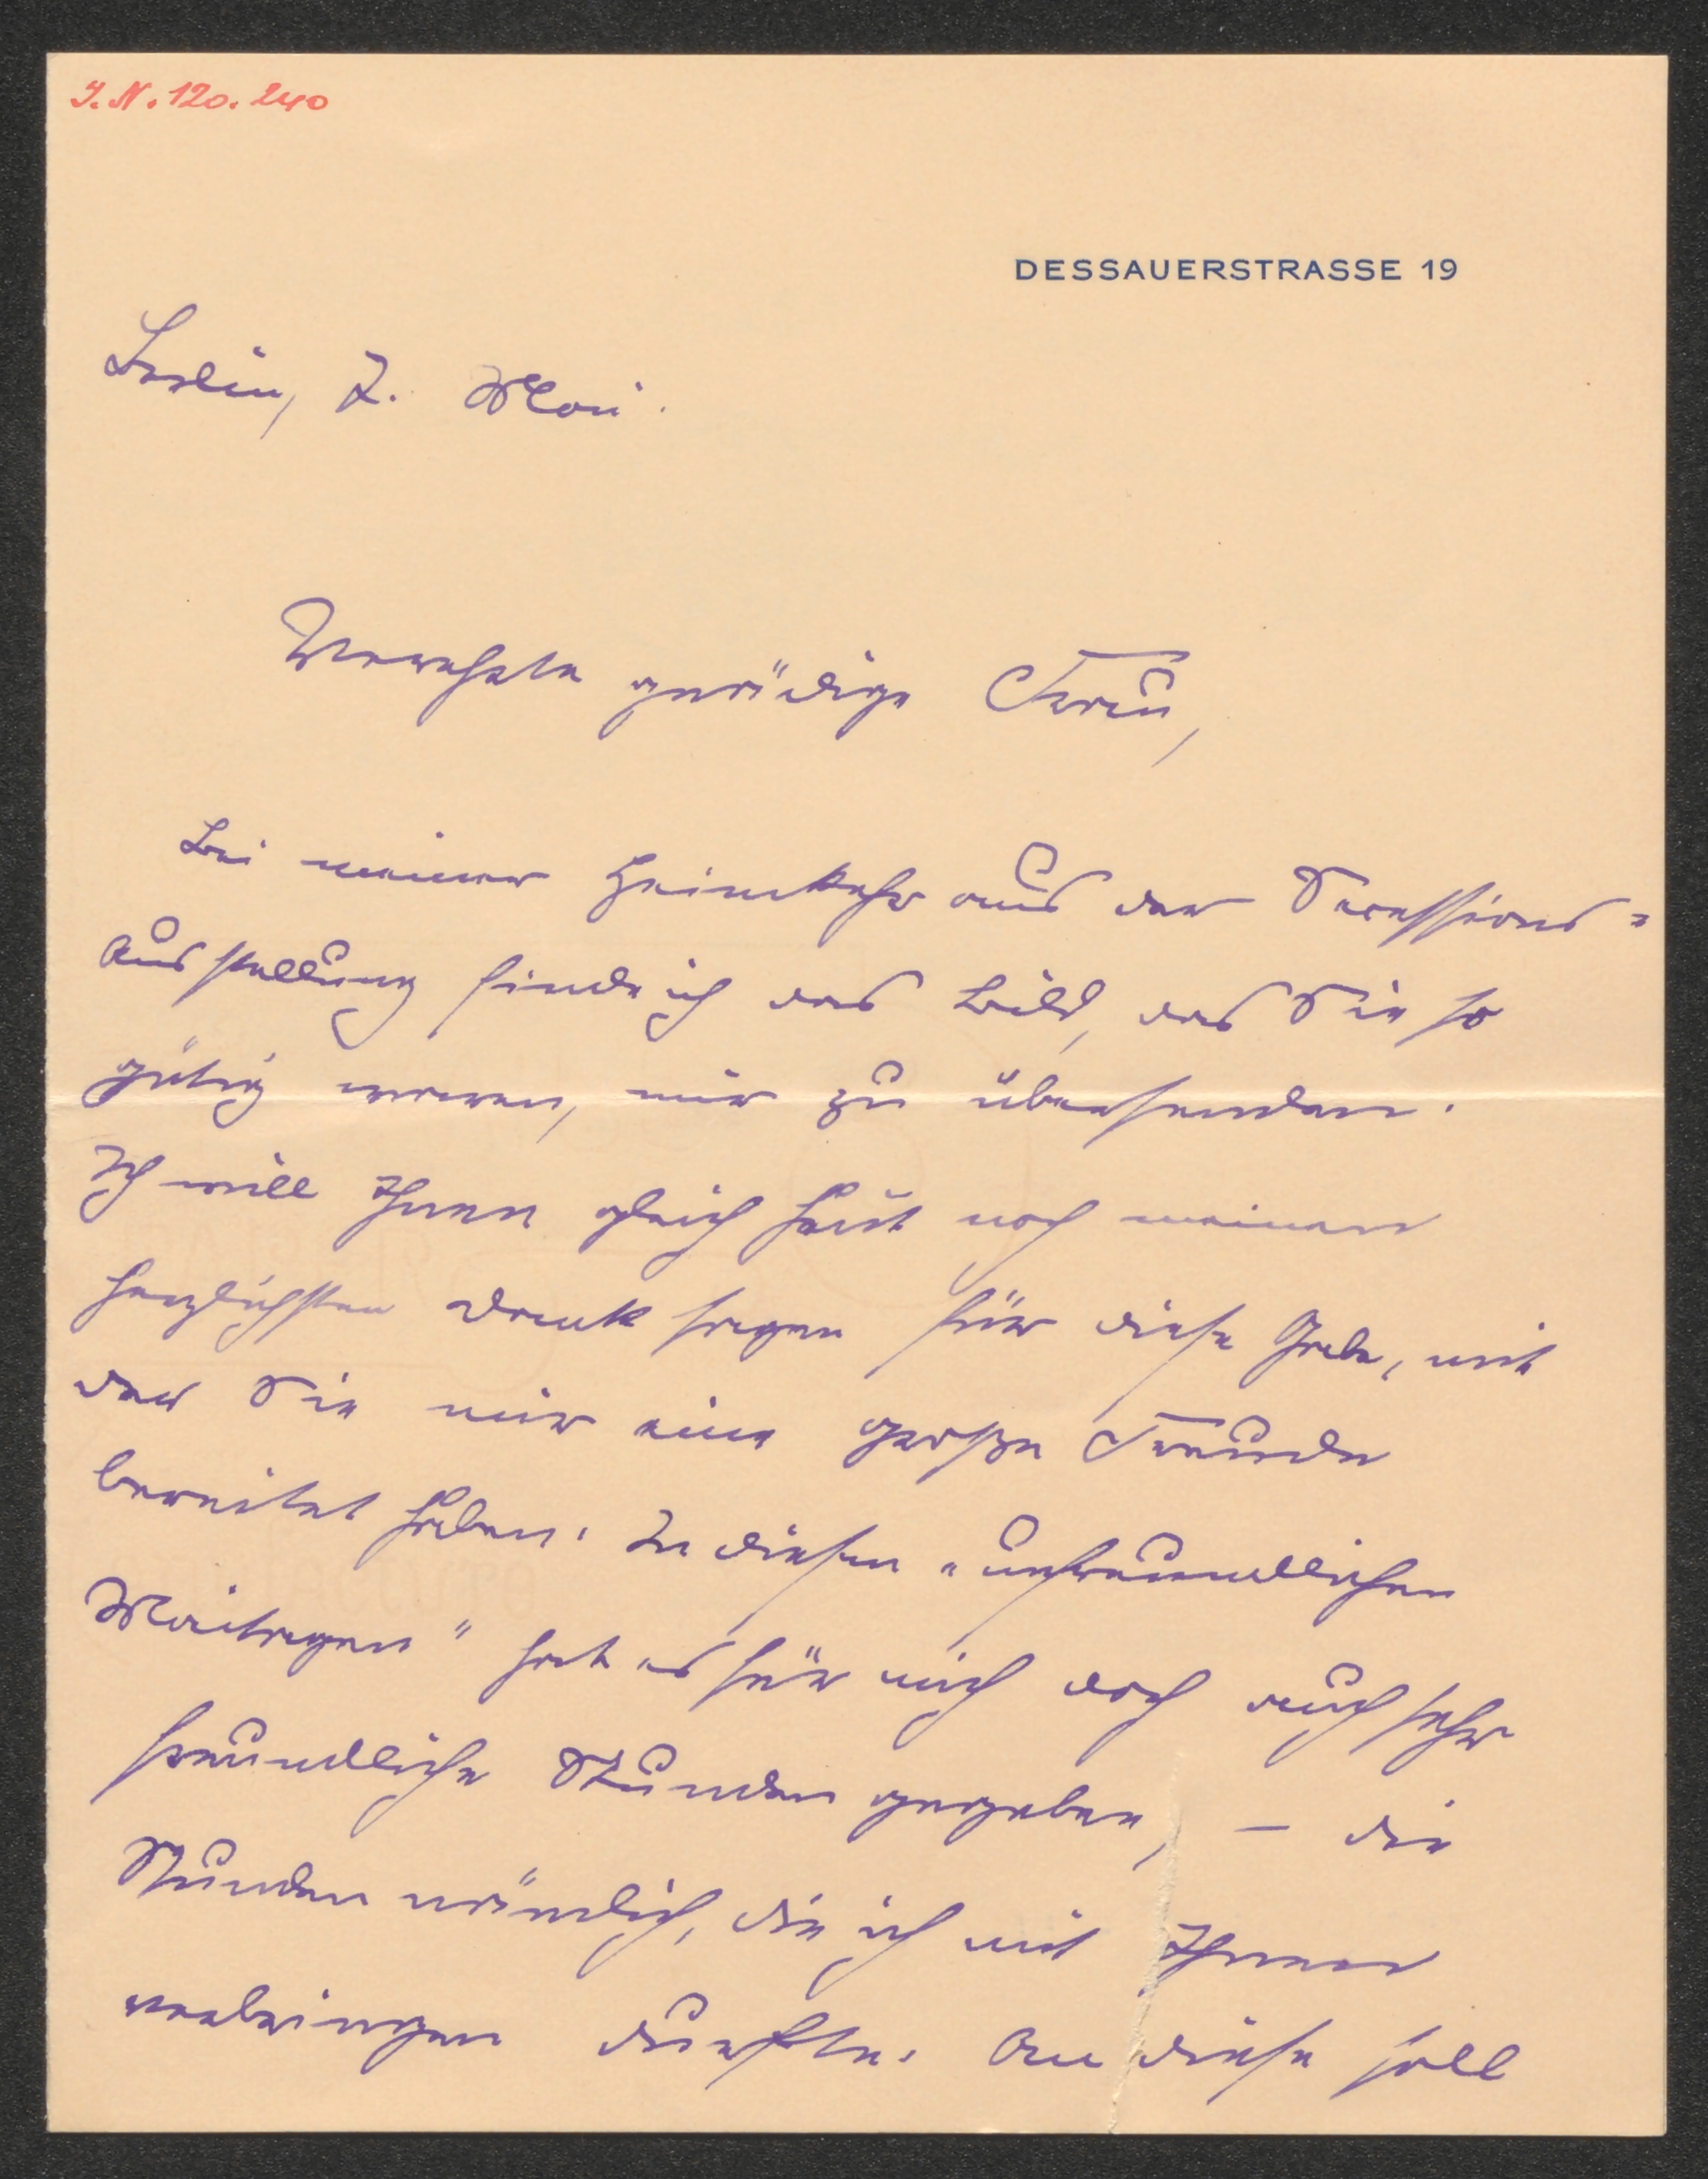 I. N. 120.240
DESSAUERSTRASSE 19
Berlin, 7. Mai.
Verehrte gnädige Frau,
Bei meiner Heimkehr aus der Secessions-
Ausstellung finde ich das Bild, das Sie so
gütig waren, mir zu übersenden.
Ich will Ihnen gleich heut noch meinen
herzlichsten Dank sagen für diese Gabe, mit
der Sie mir eine große Freude
bereitet haben. In diesen „unfreundlichen
Maitagen" hat es für mich doch auch sehr
freundliche Stunden gegeben, – die
Stunden nämlich, die ich mit Ihnen
verbringen durfte. An diese soll